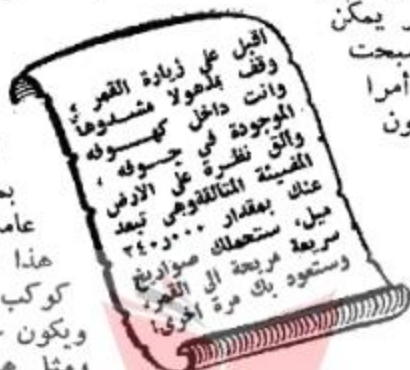 ر يمكن
سبحت
أمرا
ون
اقبل على زيارة القمر ؛
وقف مذهولا مشدوها
وانت داخل كهوفه
الموجودة في جوفه ،
والق نظرة على الارض
المضيئة المتألقة وهى تبعد
عنك بمقدار ٣٤٠ر٠٠٠
ميل، ستحملك صواريخ
سريعة مريحة الى القمر،
وستعود بك مرة اخرى!
بم
عامـ
هذا
كوكب
ويكون
ومثل